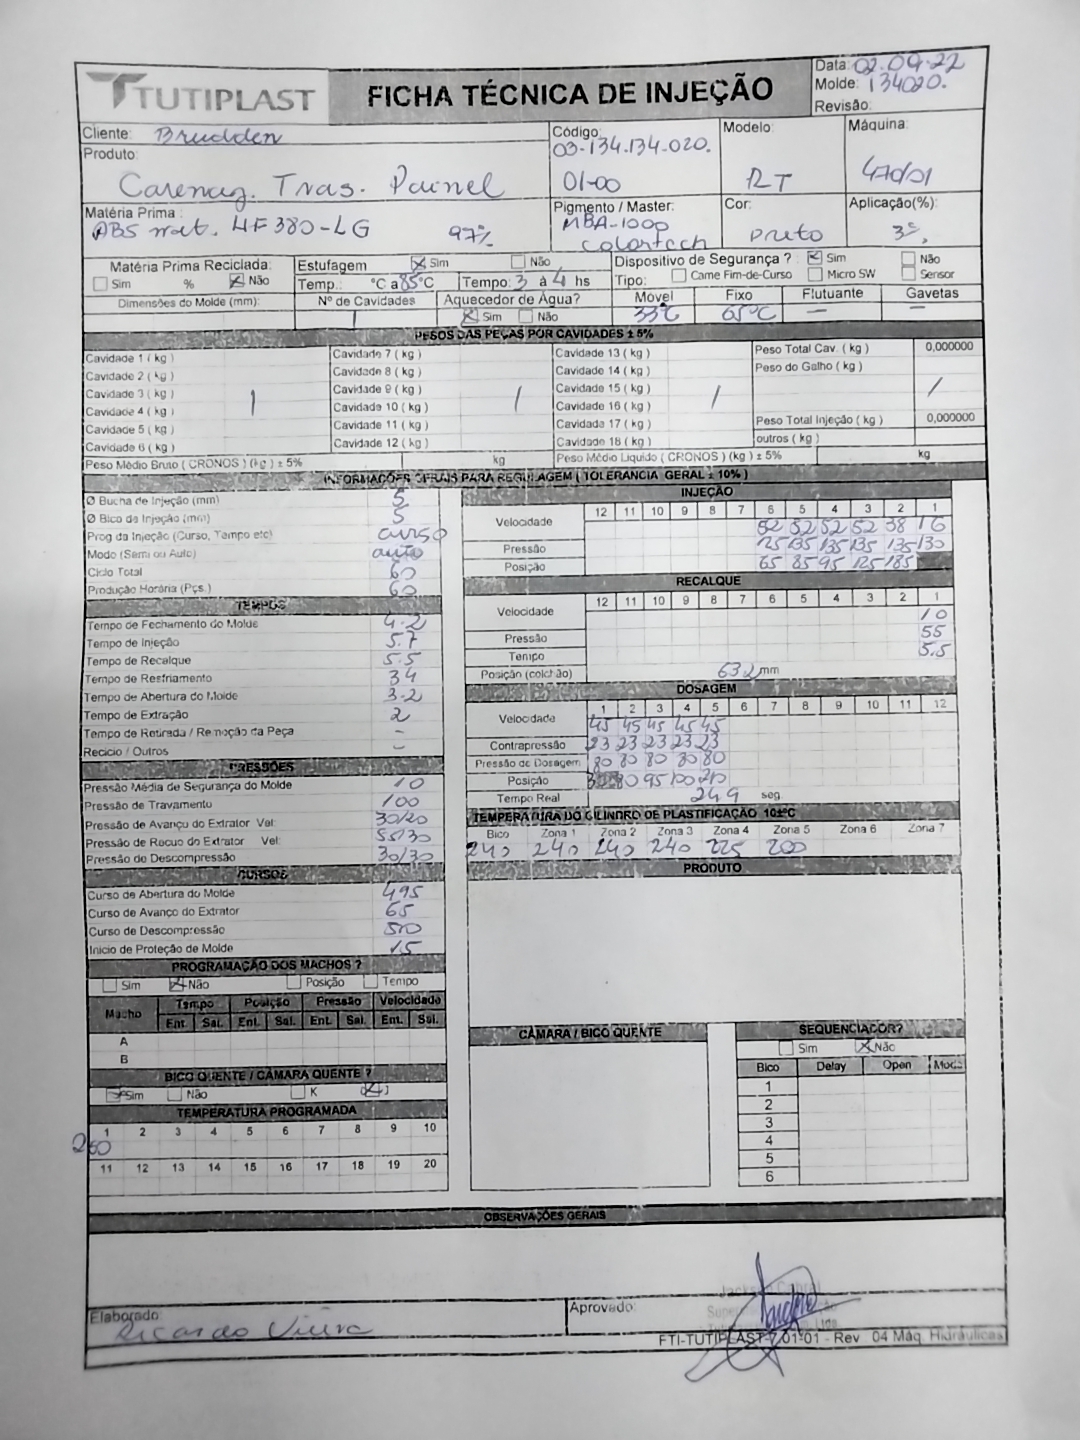 TUTIPLAST
FICHA TÉCNICA DE INJEÇÃO
Data: 02.09.22
Molde: 134020.
Revisão:
Cliente: Brudden
Produto:
Carenag. Tras. Painel
Código:
03-134.134.020.
01-00
Modelo:
RT
Máquina:
470/01
Matéria Prima :
ABS nat. HF380-LG 97%
Pigmento / Master:
MBA-100p
colortech
Cor:
Preto
Aplicação(%):
3%
Matéria Prima Reciclada:
Sim % Não
Estufagem Sim Não
Temp.: °C a 85°C Tempo: 3 à 4 hs
Dispositivo de Segurança ? Sim Não
Tipo: Came Fim-de-Curso Micro SW Sensor
Dimensões do Molde (mm):
Nº de Cavidades
1
Aquecedor de Água?
Sim Não
Móvel Fixo Flutuante Gavetas
33°C 65°C — —
PESOS DAS PEÇAS POR CAVIDADES ± 5%
Cavidade 1 ( kg ) Cavidade 7 ( kg ) Cavidade 13 ( kg ) Peso Total Cav. ( kg ) 0,000000
Cavidade 2 ( kg ) Cavidade 8 ( kg ) Cavidade 14 ( kg ) Peso do Galho ( kg )
Cavidade 3 ( kg ) Cavidade 9 ( kg ) Cavidade 15 ( kg )
/ / / /
Cavidade 4 ( kg ) Cavidade 10 ( kg ) Cavidade 16 ( kg )
Cavidade 5 ( kg ) Cavidade 11 ( kg ) Cavidade 17 ( kg ) Peso Total Injeção ( kg ) 0,000000
Cavidade 6 ( kg ) Cavidade 12 ( kg ) Cavidade 18 ( kg ) outros ( kg )
Peso Médio Bruto ( CRONOS ) (kg ) ± 5% kg Peso Médio Liquido ( CRONOS ) (kg ) ± 5% kg
INFORMAÇÕES GERAIS PARA REGULAGEM ( TOLERÂNCIA GERAL ± 10% )
Ø Bucha de Injeção (mm) 5
Ø Bico da Injeção (mm) 5
Prog da Injeção (Curso, Tempo etc) curso
Modo (Semi ou Auto) auto
Ciclo Total 60
Produção Horária (Pçs.) 60
TEMPOS
Tempo de Fechamento do Molde 4.2
Tempo de Injeção 5.7
Tempo de Recalque 5.5
Tempo de Resfriamento 34
Tempo de Abertura do Molde 3.2
Tempo de Extração 2
Tempo de Retirada / Remoção da Peça -
Reciclo / Outros -
PRESSÕES
Pressão Média de Segurança do Molde 10
Pressão de Travamento 100
Pressão de Avanço do Extrator Vel: 30/20
Pressão de Recuo do Extrator Vel: 55/30
Pressão de Descompressão 30/30
CURSOS
Curso de Abertura do Molde 495
Curso de Avanço do Extrator 65
Curso de Descompressão
Inicio de Proteção de Molde 15
PROGRAMAÇÃO DOS MACHOS ?
Sim Não Posição Tempo
Macho Tempo Posição Pressão Velocidade
Ent. Sai. Ent. Sai. Ent. Sai. Ent. Sai.
A
B
BICO QUENTE / CÂMARA QUENTE ?
Sim Não K J
TEMPERATURA PROGRAMADA
1 2 3 4 5 6 7 8 9 10
250
11 12 13 14 15 16 17 18 19 20
INJEÇÃO
12 11 10 9 8 7 6 5 4 3 2 1
Velocidade 52 52 52 52 38 16
Pressão 125 135 135 135 135 130
Posição 65 85 95 125 185
RECALQUE
12 11 10 9 8 7 6 5 4 3 2 1
Velocidade 10
Pressão 55
Tempo 5.5
Posição (colchão) 63.2 mm
DOSAGEM
1 2 3 4 5 6 7 8 9 10 11 12
Velocidade 45 45 45 45 45
Contrapressão 23 23 23 23 23
Pressão de Dosagem 80 80 80 80 80
Posição 80 95 100 210
Tempo Real 24.9 seg
TEMPERATURA DO CILINDRO DE PLASTIFICAÇÃO 10±°C
Bico Zona 1 Zona 2 Zona 3 Zona 4 Zona 5 Zona 6 Zona 7
240 240 240 240 225 200
PRODUTO
CÂMARA / BICO QUENTE
SEQUENCIADOR?
Sim Não
Bico Delay Open Modo
1
2
3
4
5
6
OBSERVAÇÕES GERAIS
Elaborado:
Ricardo Vieira
Aprovado:
FTI-TUTIPLAST-7.01-01 - Rev 04 Máq. Hidráulicas